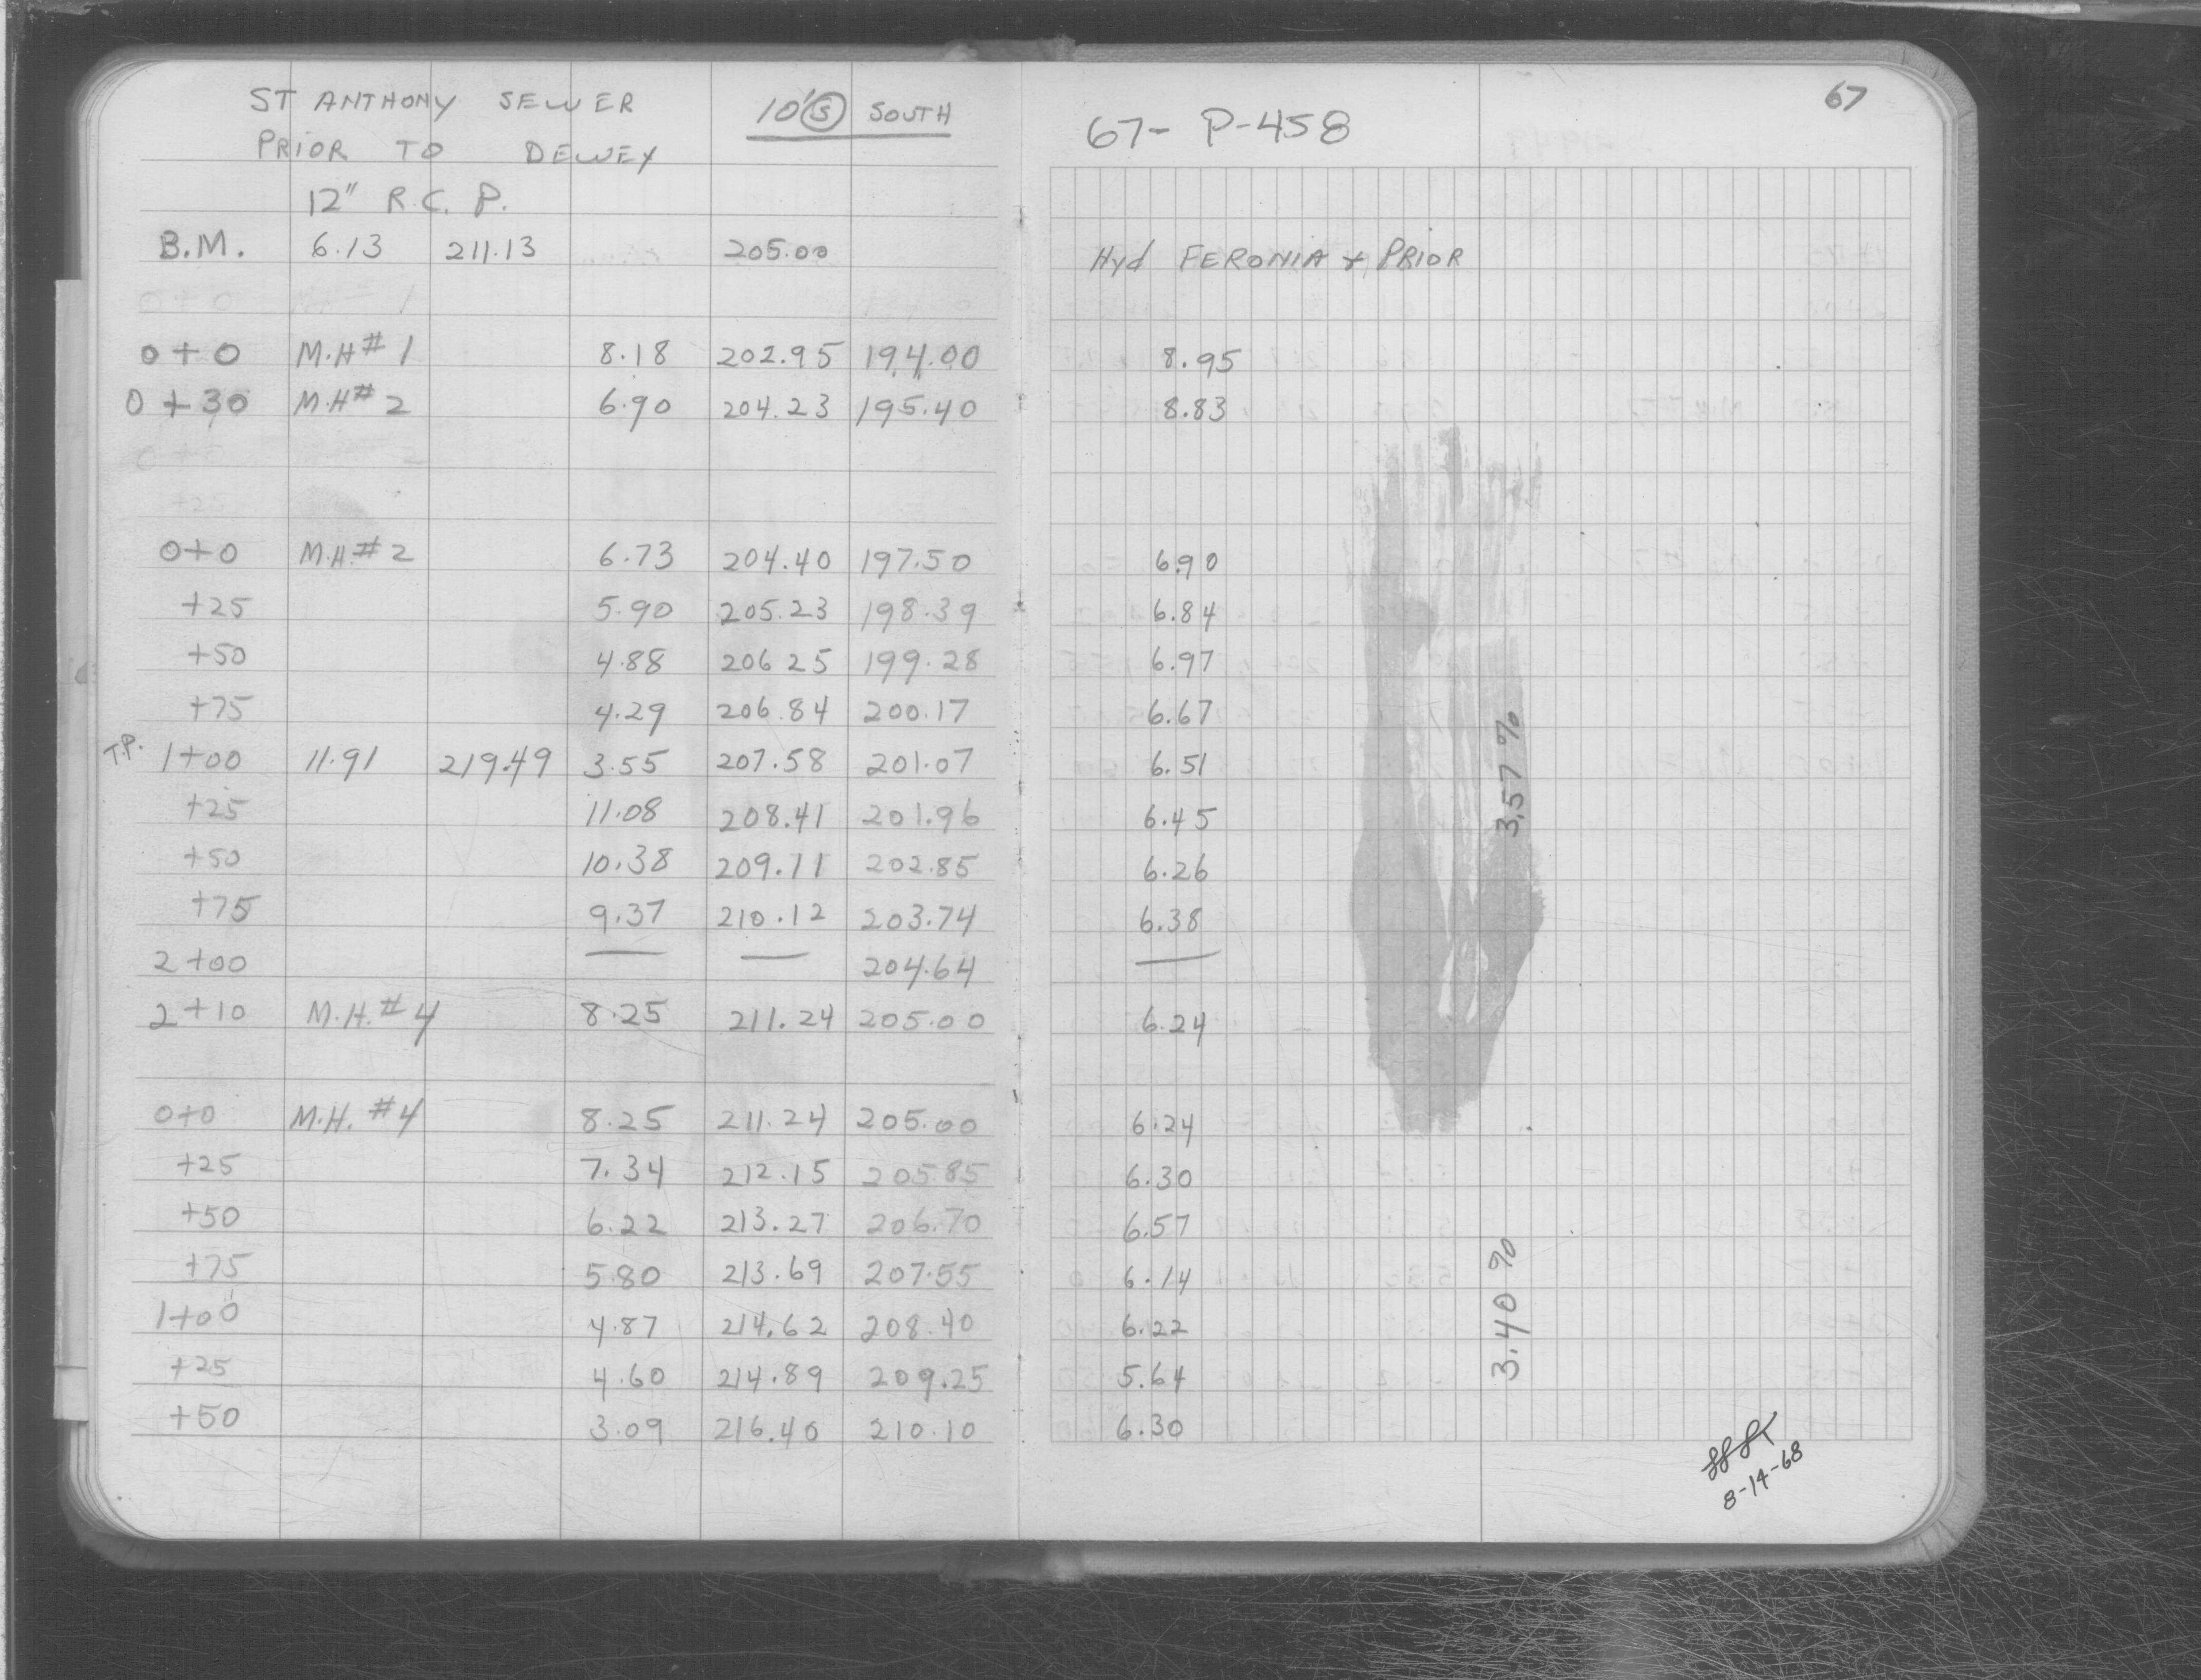 ST ANTHONY SEWER 10'S SOUTH
PRIOR TO DEWEY
12" R.C.P.
B.M. 6.13 211.13 205.00
0+0 M.H# 1 8.18 202.95 194.00
0+30 M.H# 2 6.90 204.23 195.40
0+0 M.H.# 2 6.73 204.40 197.50
+25 5.90 205.23 198.39
+50 4.88 206 25 199.28
+75 4.29 206.84 200.17
T.P. 1+00 11.91 219.49 3.55 207.58 201.07
+25 11.08 208.41 201.96
+50 10.38 209.11 202.85
+75 9.37 210.12 203.74
2+00 — — 204.64
2+10 M.H.# 4 8.25 211.24 205.00
0+0 M.H. #4 8.25 211.24 205.00
+25 7.34 212.15 205 85
+50 6.22 213.27 206.70
+75 5.80 213.69 207.55
1+00 4.87 214.62 208.40
+25 4.60 214.89 209.25
+50 3.09 216.40 210.10
67
67- P-458
Hyd FERONIA + PRIOR
8.95
8.83
6.90
6.84
6.97
6.67
6.51
6.45
6.26
6.38
—
6.24
3.57 %
6.24
6.30
6.57
6.14
6.22
5.64
6.30
3.40 %
8-14-68